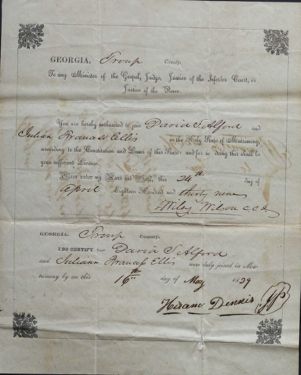 GEORGIA, Troup County.
To any Minister of the Gospel, Judge, Justice of the Inferior Court, or
Justice of the Peace.
You are hereby authorized to join David S. Alford and
Juliann Ellis in the Holy State of Matrimony,
according to the Constitution and Laws of this State: and for so doing this shall be
your sufficient License.
Given under my Hand and Seal, this 24th day of
April Eighteen Hundred and thirty nine
Wiley Wilson c c o
GEORGIA, Troup County.
I DO CERTIFY that David S. Alford
and Juliann Ellis were duly joined in Ma-
trimony by me this 16th day of May 1839
Hiram Dennis JP